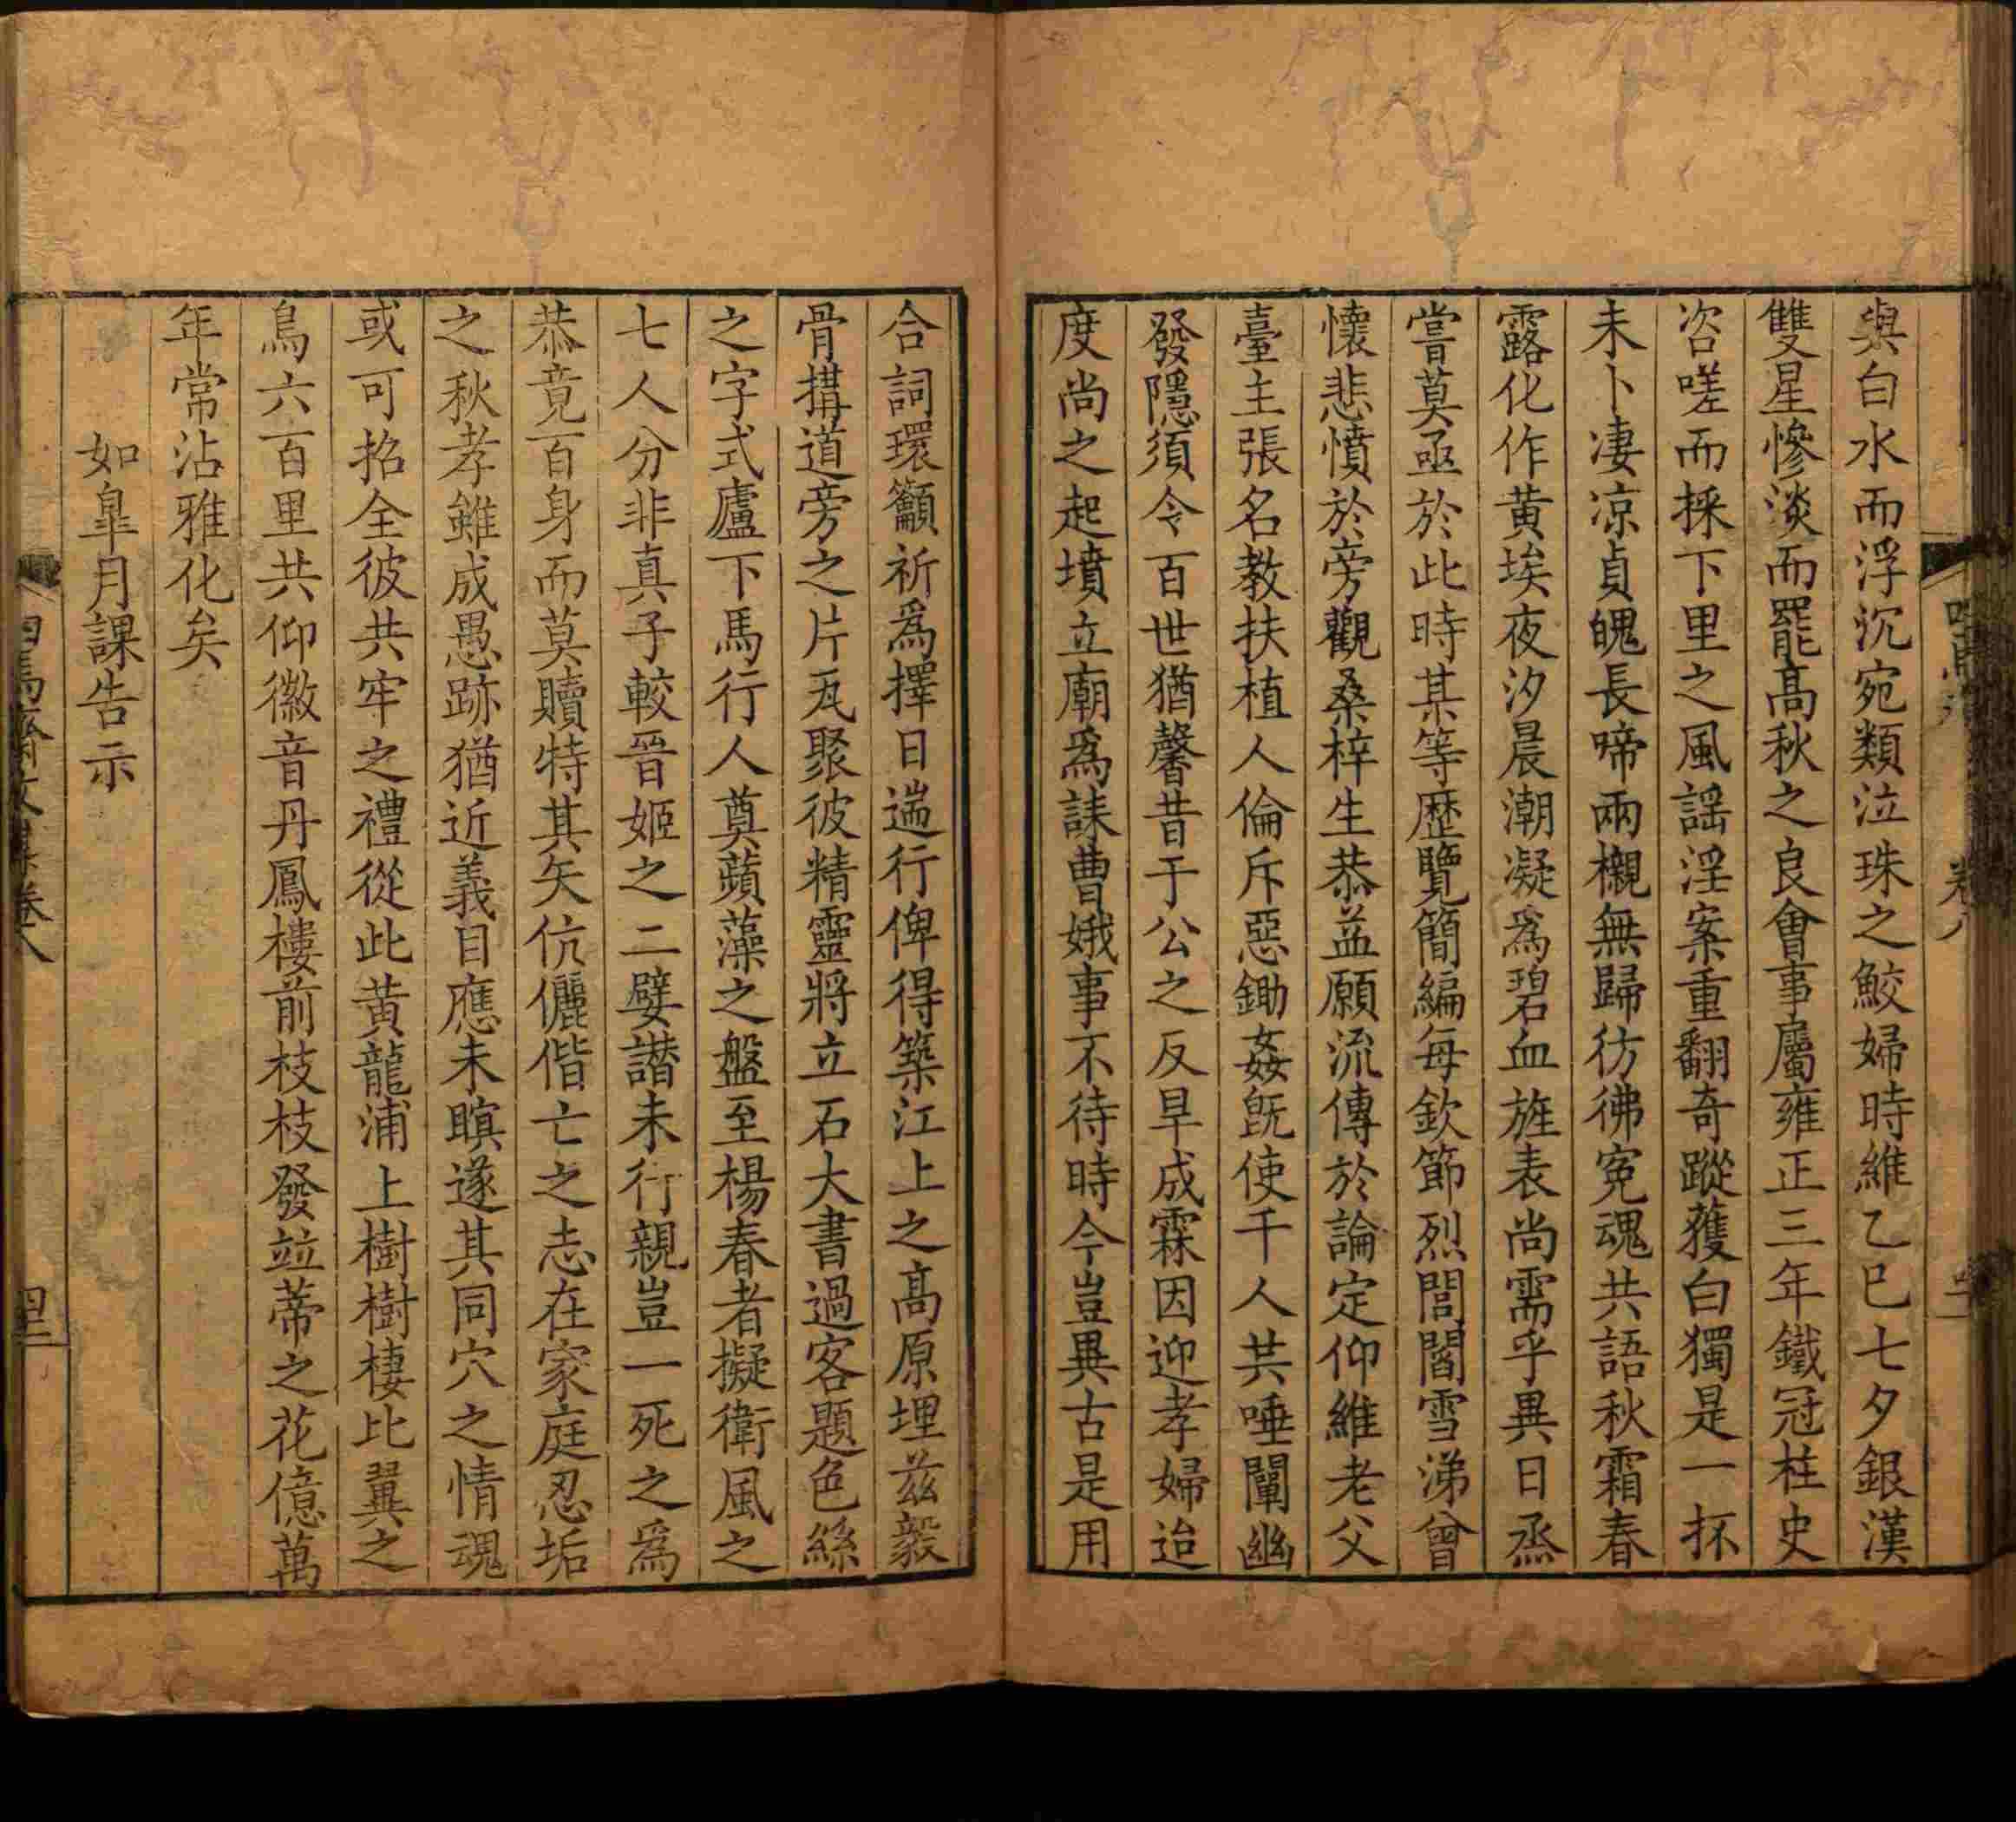 與白水而浮沉宛類泣珠之鮫婦時維乙巳七夕銀漢
雙星慘淡而罷高秋之良會事屬雍正三年鐵冠柱史
咨嗟而採下里之風謡淫案重翻奇蹤獲白獨是一抔
未卜凄凉貞魄長啼兩櫬無歸彷彿寃魂共語秋霜春
露化作黄埃夜汐晨潮凝爲碧血旌表尚需乎異日烝
嘗莫亟於此時某等歷覽簡編每欽節烈閭閻雪涕曾
懷悲憤於旁觀桑梓生恭益願流傳於論定仰維老父
臺主張名教扶植人倫斥惡鋤姦旣使千人共唾闡幽
發隱須令百世猶馨昔于公之反旱成霖因迎孝婦迨
度尚之起墳立廟爲誄曹娥事不待時今豈異古是用
合詞環籲祈爲擇日遄行俾得築江上之高原埋兹毅
骨搆道旁之片瓦聚彼精靈將立石大書過客題色絲
之字式廬下馬行人奠蘋藻之盤至楊春者擬衛風之
七人分非真子較晉姬之二嬖譖未行親豈一死之爲
恭竟百身而莫贖特其矢伉儷偕亡之志在家庭忍垢
之秋孝雖成愚跡猶近義目應未瞑遂其同穴之情魂
或可招全彼共牢之禮從此黄龍浦上樹樹棲比翼之
鳥六百里共仰徽音丹鳳樓前枝枝發竝蒂之花億萬
年常沾雅化矣
如皐月課告示
四焉齋文集卷八